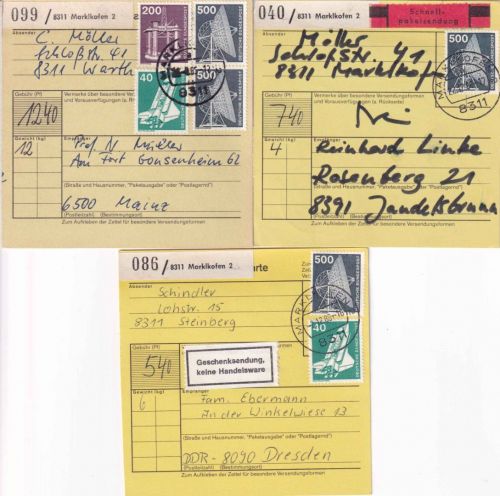 099 / 8311 Marklkofen 2
Absender
C. Möller
Schloßstr. 41
8311 Warth
200
500
40
500
MARKLKOFEN
8311
Gebühr (Pf)
1240
Vermerke über besondere Versendungsformen
und Vorausverfügungen (a. Rückseite)
Gewicht (kg)
12
Empfänger
Prof N Müller
Am Fort Gonsenheim 62
(Straße und Hausnummer, "Paketausgabe" oder "Postlagernd")
6500 Mainz
(Postleitzahl) (Bestimmungsort)
Zum Aufkleben der Zettel für besondere Versendungsformen
040 / 8311 Marklkofen 2
Schnell-
paketsendung
Absender
Möller
Schloßstr. 41
8311 Marklkofen
500
MARKLKOFEN
8311
Gebühr (Pf)
740
Vermerke über besondere Versendungsformen
und Vorausverfügungen (a. Rückseite)
Gewicht (kg)
4
Empfänger
Reinhard Linke
Rosenberg 21
(Straße und Hausnummer, "Paketausgabe" oder "Postlagernd")
8391 Jandelsbrunn
(Postleitzahl) (Bestimmungsort)
Zum Aufkleben der Zettel für besondere Versendungsformen
086 / 8311 Marklkofen 2
Absender
Schindler
Lohstr. 15
8311 Steinberg
500
40
MARKLKOFEN
8311
Gebühr (Pf)
540
Geschenksendung,
keine Handelsware
Gewicht (kg)
6
Empfänger
Fam. Ebermann
An der Winkelwiese 13
(Straße und Hausnummer, "Paketausgabe" oder "Postlagernd")
DDR-8090 Dresden
(Postleitzahl) (Bestimmungsort)
Zum Aufkleben der Zettel für besondere Versendungsformen